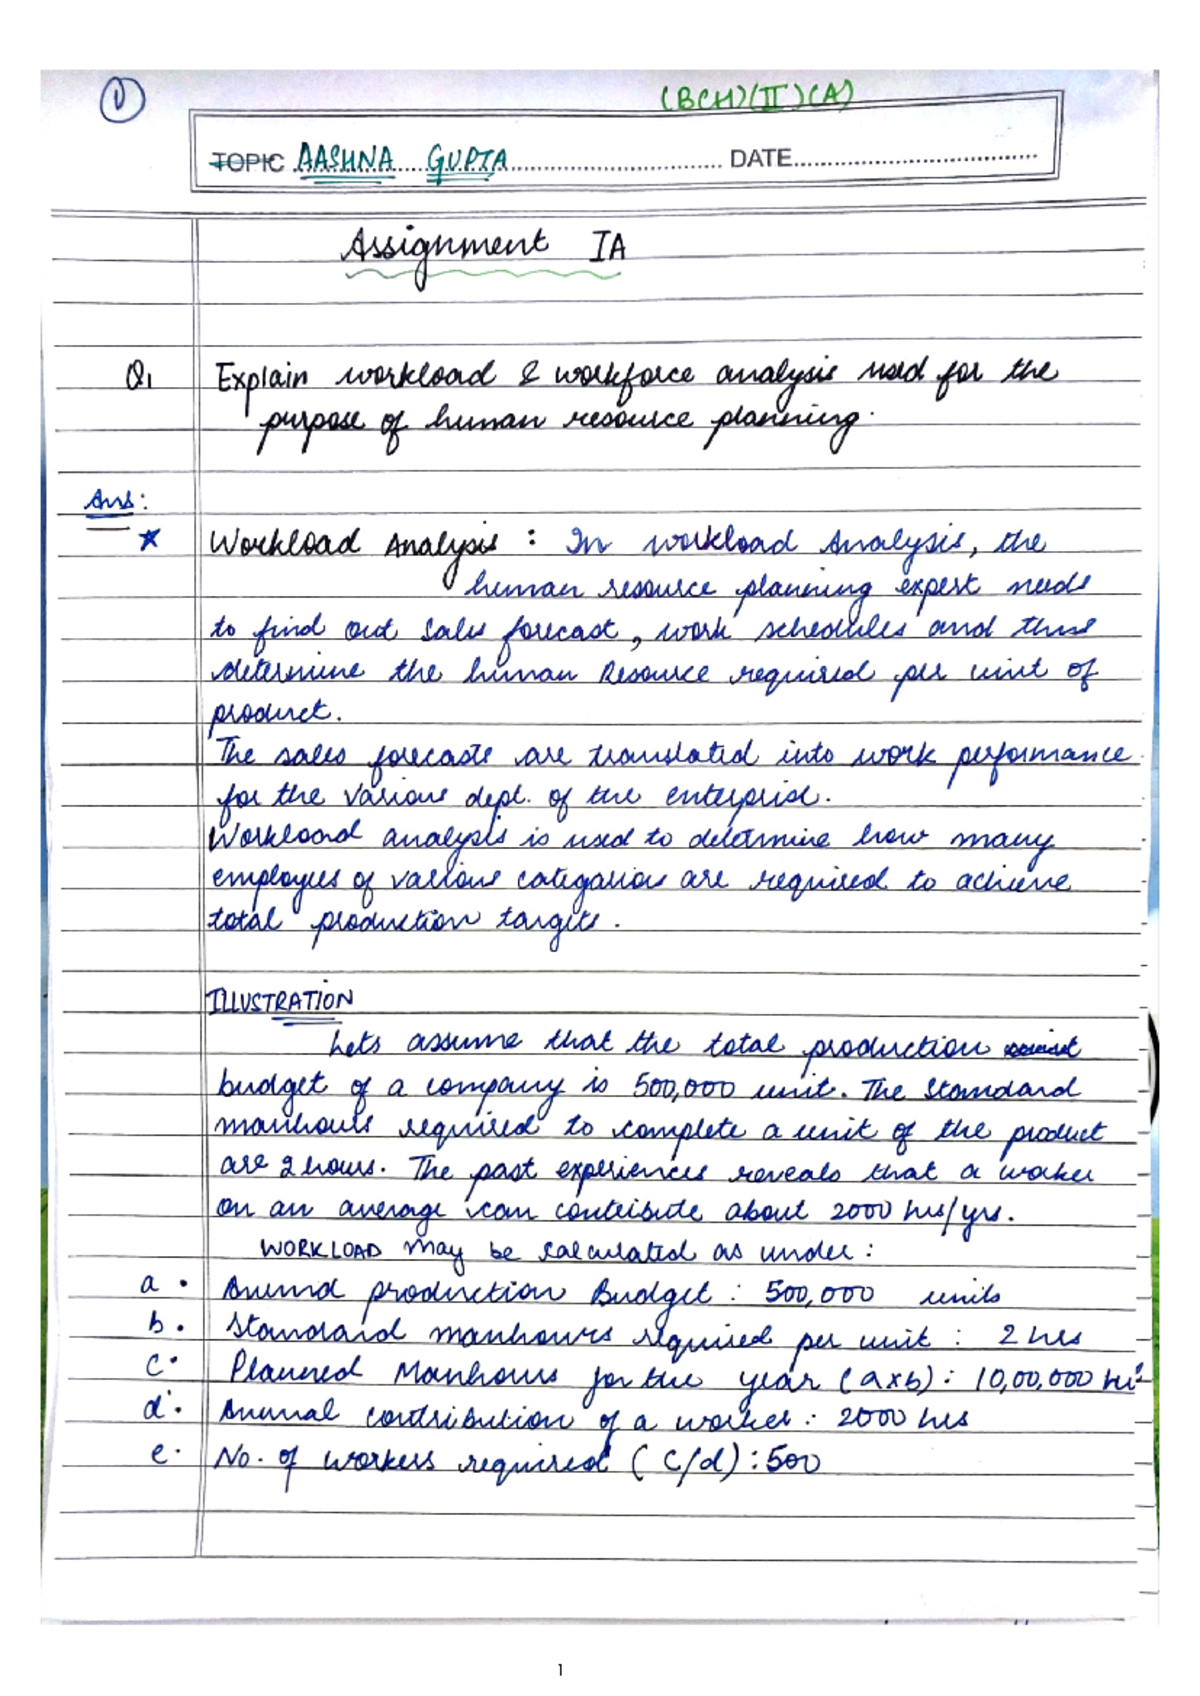 1
(BCH)(II)(A)
TOPIC AASHNA GUPTA DATE
Assignment IA
Q1 Explain workload & workforce analysis used for the
purpose of human resource planning.
Ans:
* Workload Analysis : In workload Analysis, the
human resource planning expert needs
to find out sales forecast, work schedules and thus
determine the human Resource required per unit of
product.
The sales forecasts are translated into work performance
for the various dept. of the enterprise.
Workload analysis is used to determine how many
employees of various categories are required to achieve
total production targets.
ILLUSTRATION
Lets assume that the total production
budget of a company is 500,000 unit. The standard
manhours required to complete a unit of the product
are 2 hours. The past experiences reveals that a worker
on an average can contribute about 2000 hrs/yrs.
WORKLOAD may be calculated as under :
a. Annual production Budget : 500,000 units
b. Standard manhours required per unit : 2 hrs
c. Planned Manhours for the year (axb) : 10,00,000 hrs
d. Annual contribution of a worker : 2000 hrs
e. No. of workers required (c/d) : 500
1